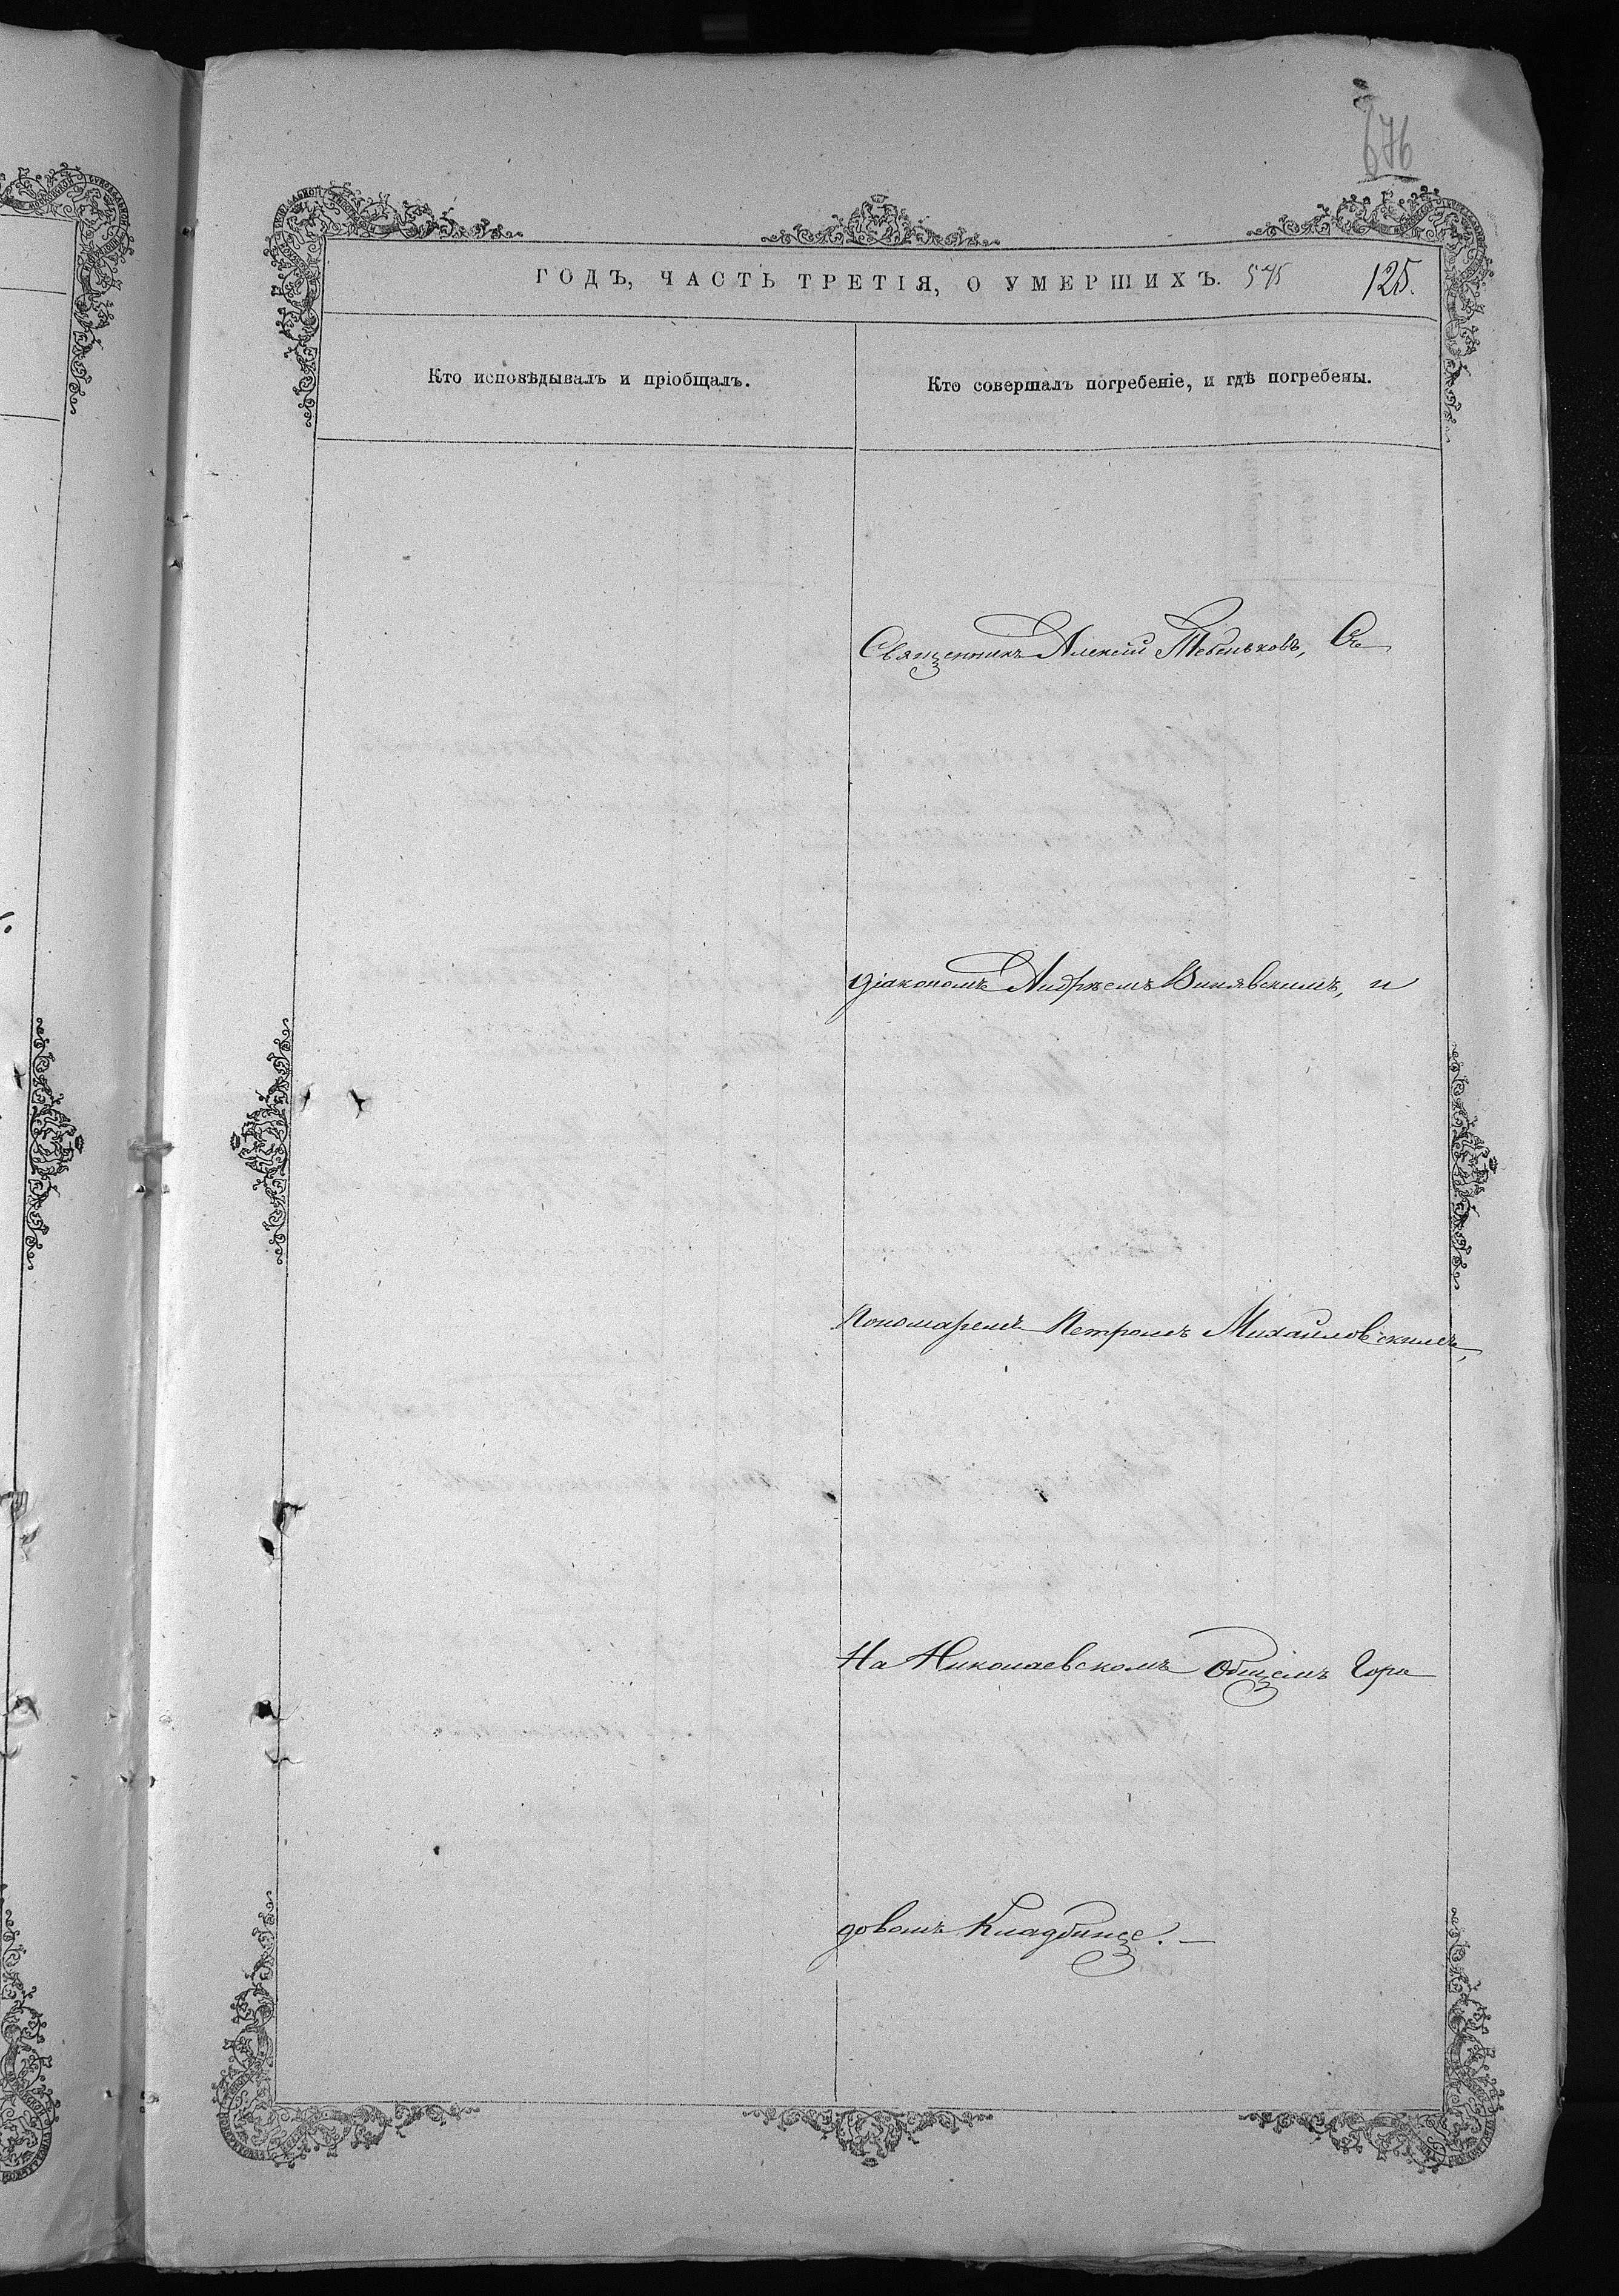 676
ГОДЪ, ЧАСТЬ ТРЕТІЯ, О УМЕРШИХЪ. 545 125.
Кто исповѣдывалъ и пріобщалъ.
Кто совершалъ погребеніе, и гдѣ погребены.
Священникъ Алексій Тебеньковъ, Съ
діакономъ Андреемъ Винявскимъ, и
Пономаремъ Петромъ Михайловскимъ,
На Николаевскомъ Общемъ Горо
довомъ Кладбище. —